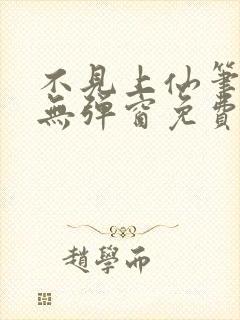 不見上仙筆
無彈窗免費
趙學而